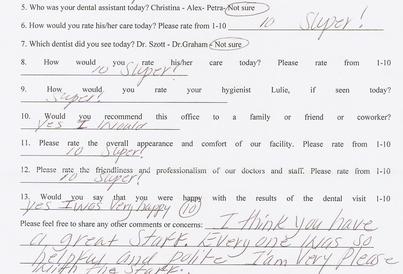 5. Who was your dental assistant today? Christina - Alex- Petra- Not sure
6. How would you rate his/her care today? Please rate from 1-10 10 Super!
7. Which dentist did you see today? Dr. Szott - Dr.Graham - Not sure
8. How would you rate his/her care today? Please rate from 1-10
10 Super!
9. How would you rate your hygienist Lulie, if seen today?
Super!
10. Would you recommend this office to a family or friend or coworker?
Yes I would
11. Please rate the overall appearance and comfort of our facility. Please rate from 1-10
10 Super!
12. Please rate the friendliness and professionalism of our doctors and staff. Please rate from 1-10
10 Super!
13. Would you say that you were happy with the results of the dental visit 1-10
Yes I was very happy 10
Please feel free to share any other comments or concerns: I think you have
a great Staff. Everyone was so
helpful and polite I am very Please
with the Staff.